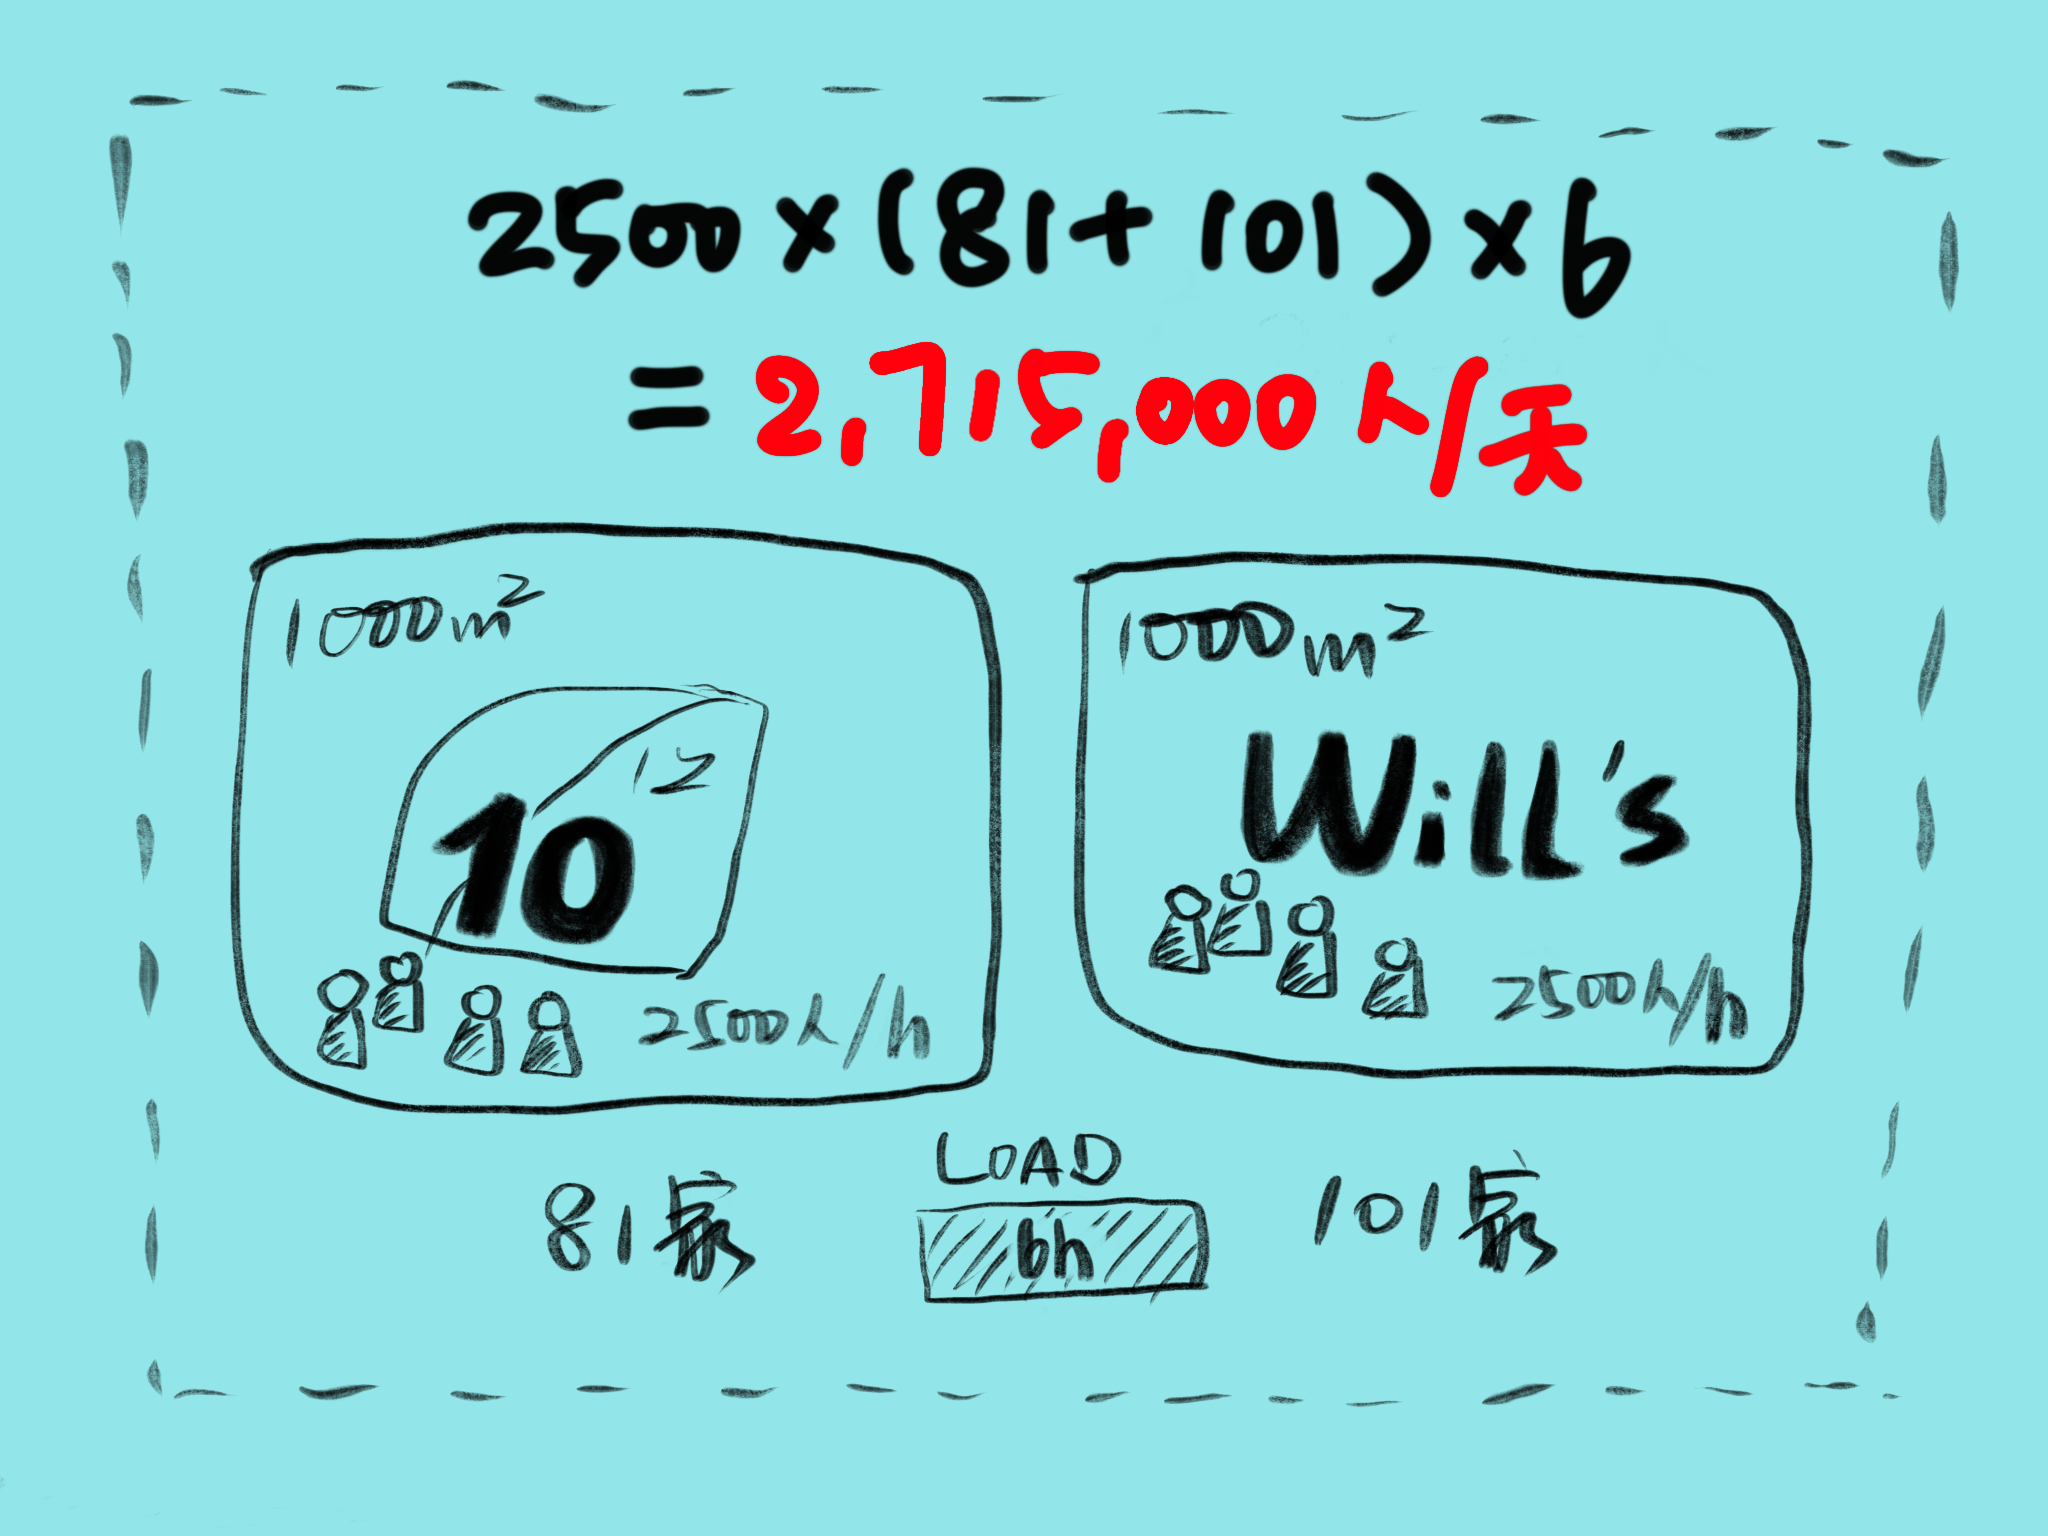 2500×(81+101)×6
=2,715,000人/天
1000m²
12
10
2500人/h
1000m²
Will's
2500人/h
81家
LOAD
6h
101家